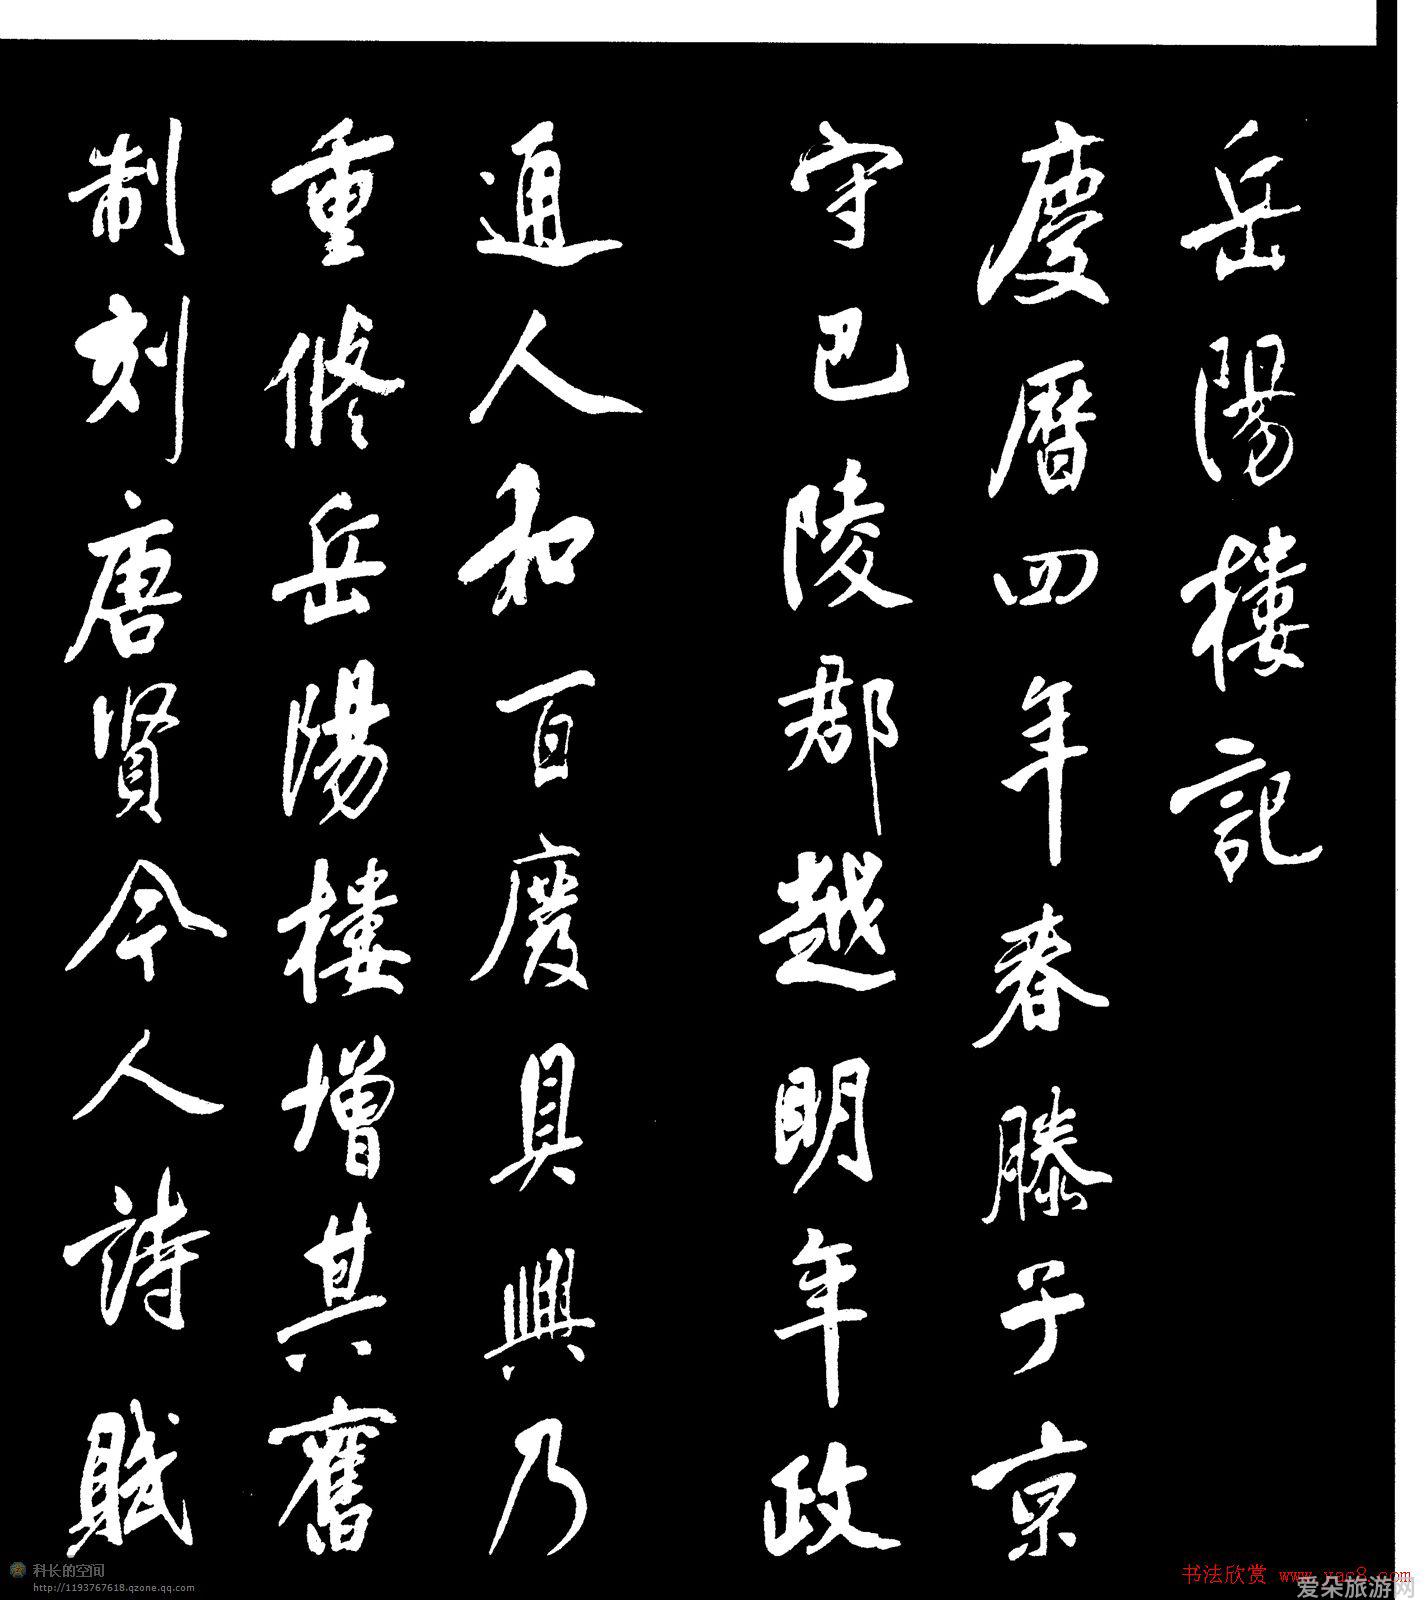 岳陽樓記
慶曆四年春滕子京
守巴陵郡越明年政
通人和百廢具興乃
重修岳陽樓增其舊
制刻唐賢今人詩賦
科长的空间
http://1193767618.qzone.qq.com
书法欣赏 www.yac8.com
爱朵旅游网